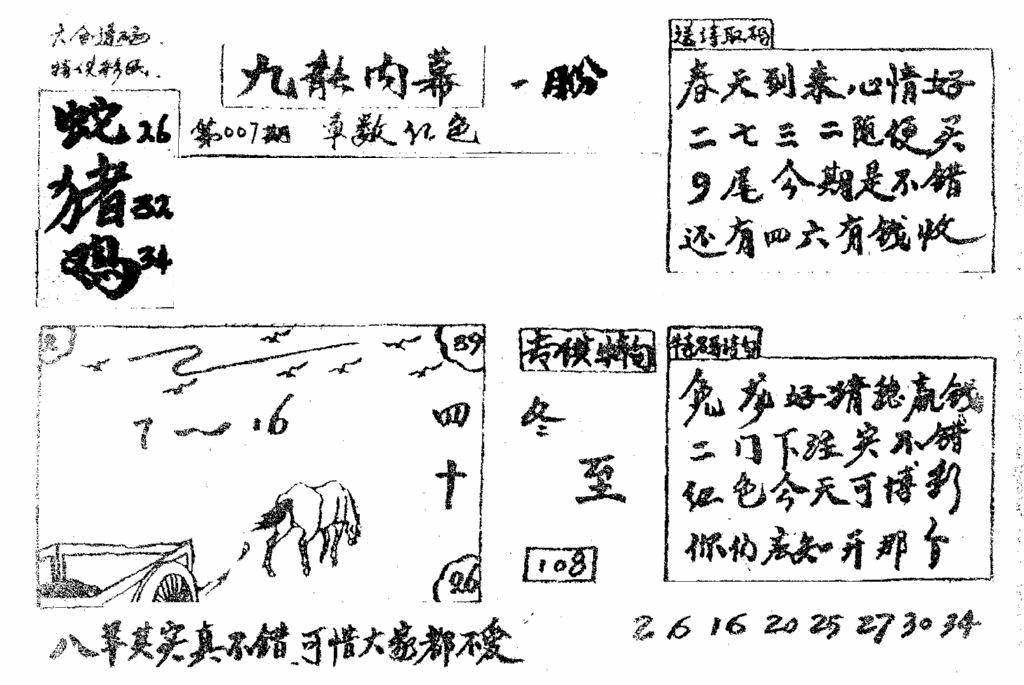 九龍内幕
一肦
第007期 单数红色
蛇26
猪32
鸡34
送诗取码
春天到来心情好
二七三二随便买
9尾今期是不错
还有四六有钱收
39
7～16
四
十
26
专供特句
冬
至
108
特码诗句
兔龙好猜能赢钱
二门下注实不错
红色今天可博彩
你估应知开那个
八单其实真不错 可惜大家都不爱
2 6 16 20 25 27 30 34